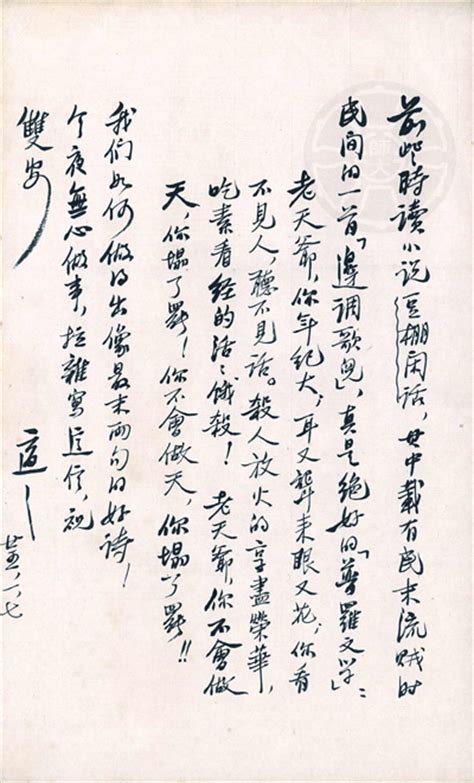 前些時读小说豆棚闲话,其中載有明末流贼时
民间的一首「邊調歌兒」,真是絕好的「普羅文学」:
老天爺,你年紀大;耳又聾来眼又花;你看
不見人,聽不見话。殺人放火的享盡榮華,
吃素看經的活活餓殺! 老天爺,你不會做
天,你塌了罷!你不會做天,你塌了罷!!
我们如何做的出像最末两句的好诗!
今夜無心做事,拉雜寫这信,祝
雙安
適
師大